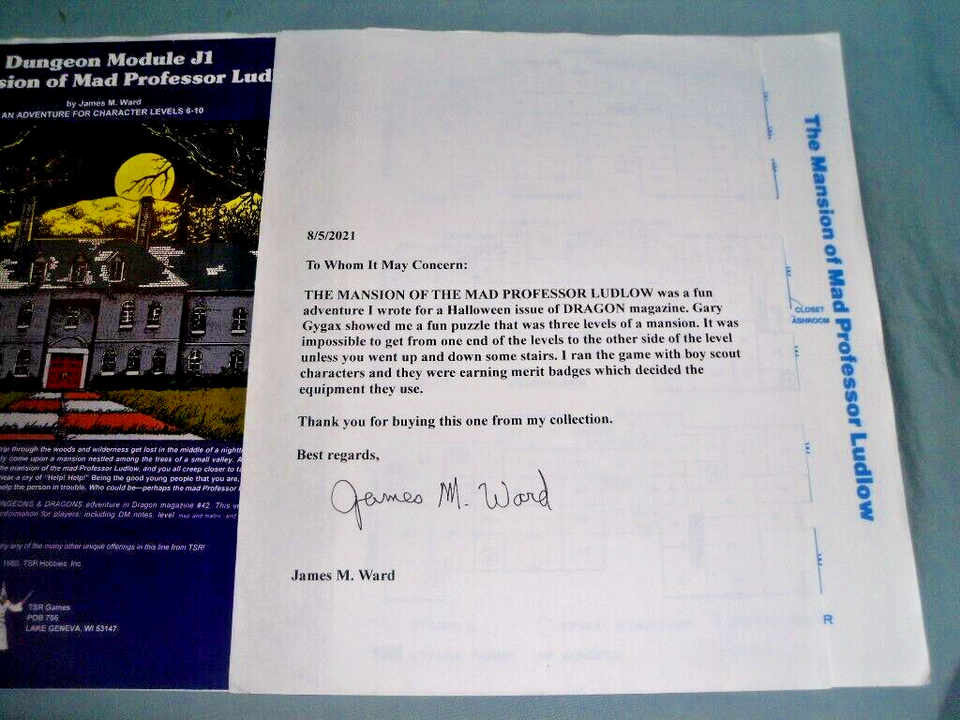 Dungeon Module J1
sion of Mad Professor Lud
by James M. Ward
AN ADVENTURE FOR CHARACTER LEVELS 6-10
trip through the woods and wilderness get lost in the middle of a night
ly come upon a mansion nestled among the trees of a small valley. A
the mansion of the mad Professor Ludlow, and you all creep closer to
hear a cry of "Help! Help!" Being the good young people that you are,
help the person in trouble. Who could be—perhaps the mad Professor
NGEONS & DRAGONS adventure in Dragon magazine #42. This
information for players, including DM notes, level map and matrix, and
any of the many other unique offerings in this line from TSR!
1980, TSR Hobbies, Inc.
TSR Games
POB 756
LAKE GENEVA, WI 53147
8/5/2021
To Whom It May Concern:
THE MANSION OF THE MAD PROFESSOR LUDLOW was a fun
adventure I wrote for a Halloween issue of DRAGON magazine. Gary
Gygax showed me a fun puzzle that was three levels of a mansion. It was
impossible to get from one end of the levels to the other side of the level
unless you went up and down some stairs. I ran the game with boy scout
characters and they were earning merit badges which decided the
equipment they use.
Thank you for buying this one from my collection.
Best regards,
James M. Ward
James M. Ward
The Mansion of Mad Professor Ludlow
CLOSET
ASHROOM
R